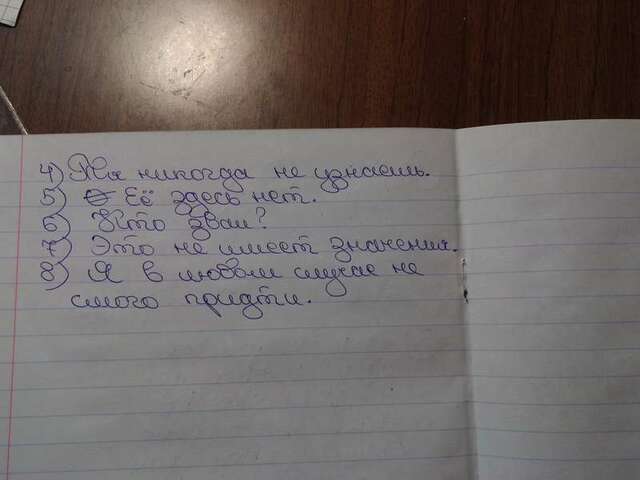 4) Ты никогда не узнаешь.
5) Её здесь нет.
6) Кто звал?
7) Это не имеет значения.
8) Я в любом случае не
смогу придти.